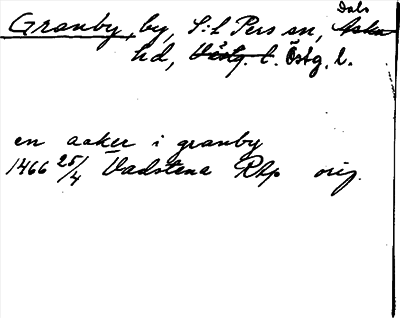 Granby, by, S:t Pers sn, Dals Aska
hd, Västg. l. Östg. l.
en aaker i granby
1466 25/4 Vadstena RAp orig.